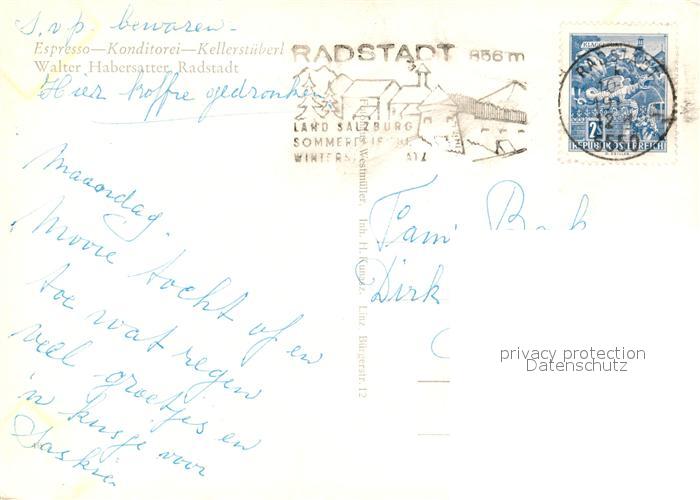 S.v.p. bewaren.
Espresso—Konditorei—Kellerstüberl
Walter Habersatter, Radstadt
Hier koffie gedronken.
RADSTADT 856 m
LAND SALZBURG
SOMMERFRISCHE
WINTERS ATZ
2 S
REPUBLIK ÖSTERREICH
Maandag.
Mooie tocht af en
toe wat regen
veel groetjes en
'n kusje voor
Saskia
Westmüller, Inh. H. Linz, Bürgerstr. 12
Fam.
Dirk
privacy protection
Datenschutz